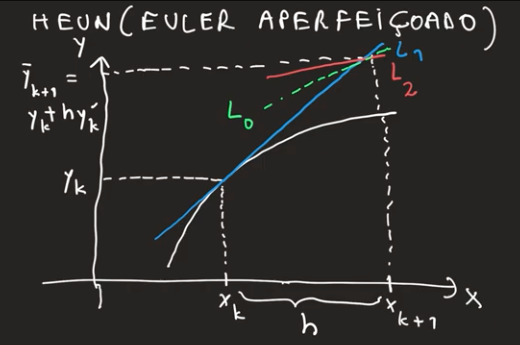 HEUN (EULER APERFEIÇOADO)
Y
ȳₖ₊₁ =
yₖ + hyₖ′
L₁
L₂
L₀
yₖ
xₖ
xₖ₊₁
X
h